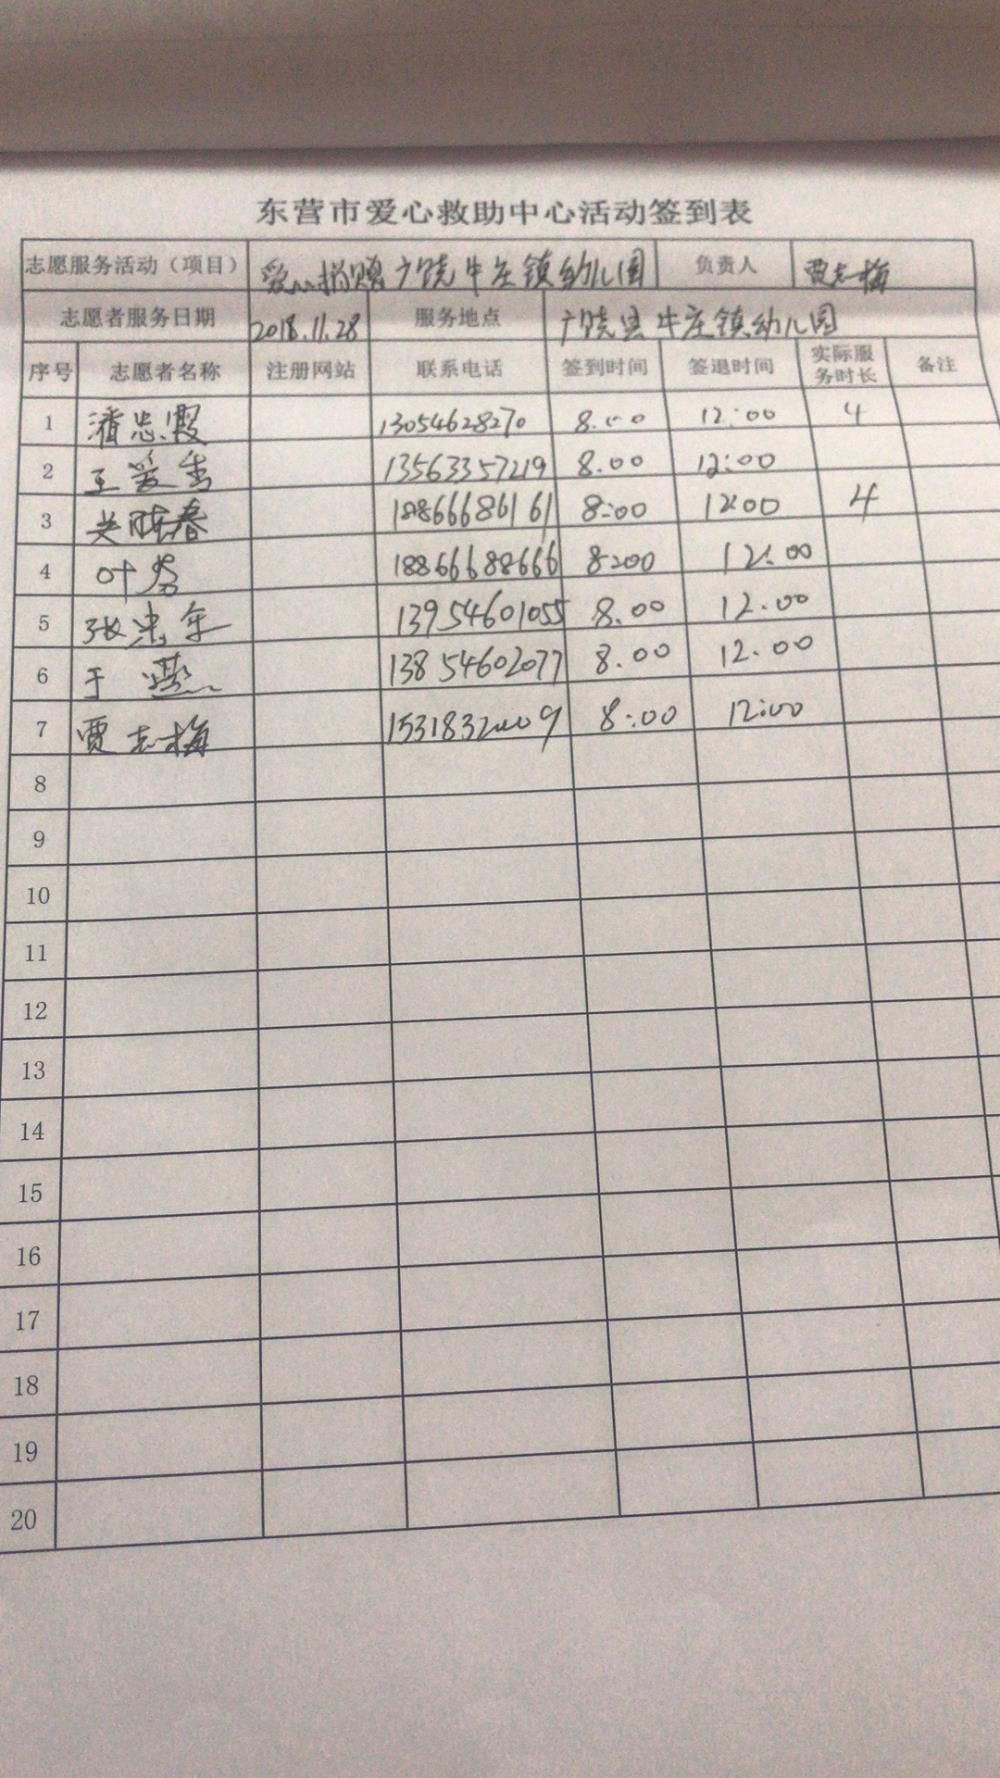 东营市爱心救助中心活动签到表
志愿服务活动（项目） 爱心捐赠广饶牛庄镇幼儿园 负责人 贾志梅
志愿者服务日期 2018.11.28 服务地点 广饶县牛庄镇幼儿园
序号 志愿者名称 注册网站 联系电话 签到时间 签退时间 实际服务时长 备注
1 潘忠霞 13054628270 8:00 12:00 4
2 王爱香 13563357219 8.00 12:00
3 春 18866686161 8:00 12:00 4
4 叶芳 18866688666 8:00 12:00
5 张忠年 13954601055 8.00 12.00
6 于燕 13854602077 8.00 12.00
7 贾志梅 15318320009 8:00 12:00
8
9
10
11
12
13
14
15
16
17
18
19
20